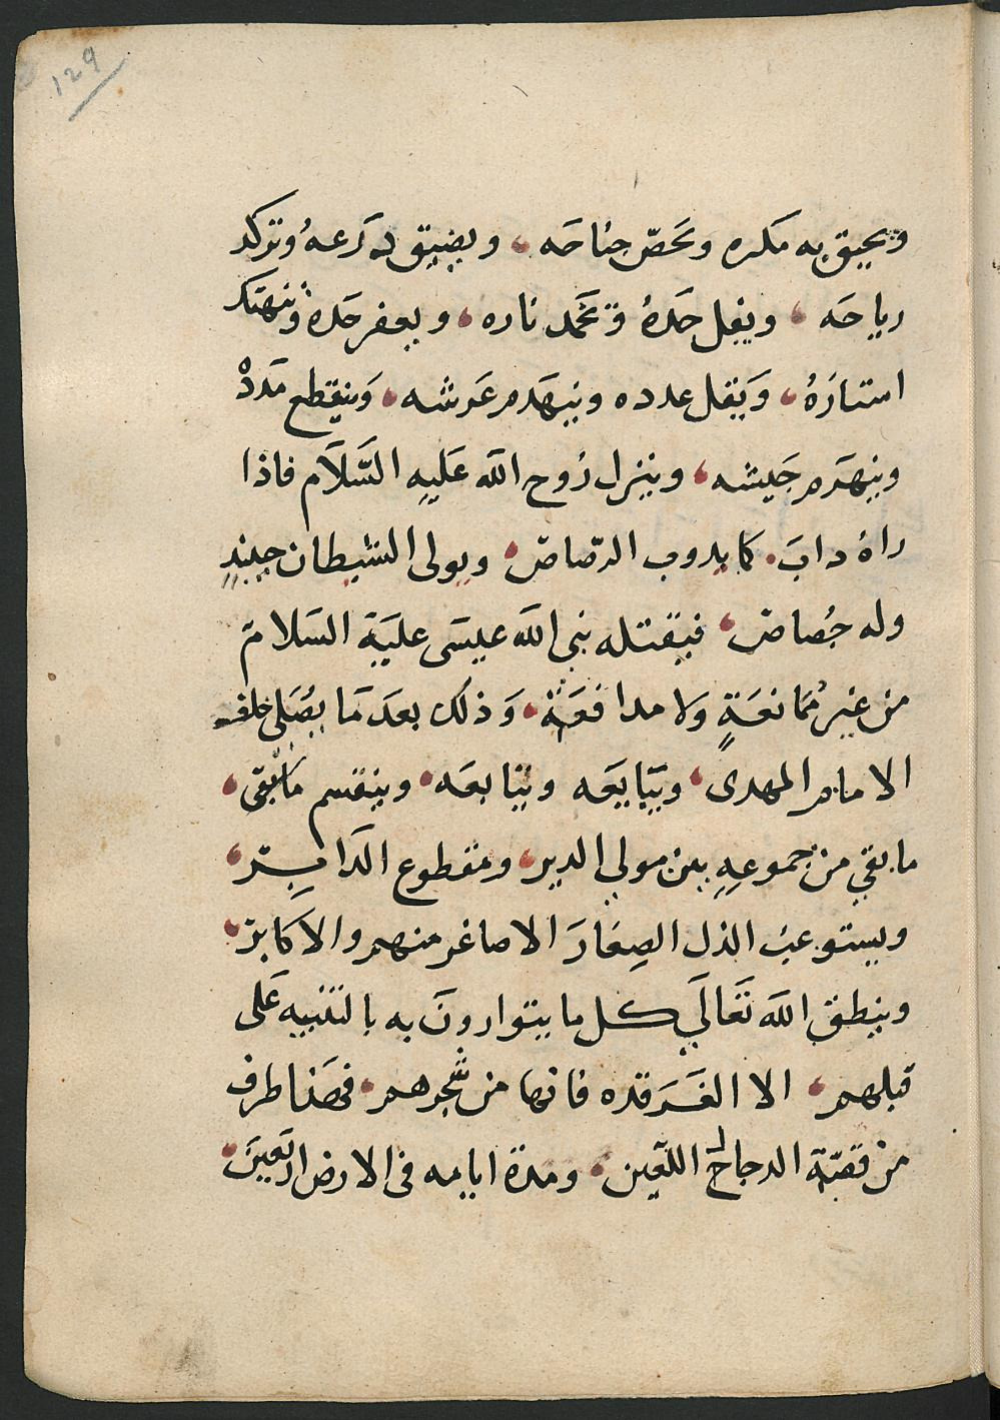 ١٢٩
ويحيق به مكره ويحصّ جناحه، ويضيق ذرعه وتركد
رياحه، ويفل حده وتخمد ناره، ويعفر خده وتنهتك
استاره، ويقل عدده وينهدم عرشه، وينقطع مدده
وينهزم جيشه، وينزل روح الله عليه السّلام فاذا
راه داب. كما يدوب الرّصاص، ويولى الشيطان حينيدٍ
وله حُصاص، فيقتله نبى الله عيسى عليه السلام
من غير ممانعةٍ ولا مدافعة، وذلك بعد ما يصلى خلف
الامام المهدى، ويبايعه ويتابعه، وينقسم ما بقى،
ما بقي من جموعه بين مولي الدبر، ومقطوع الدابر،
ويستوعب الذل الصغار الاصاغر منهم والاكابر،
وينطق الله تعالي كل ما يتوارون به بالتنبيه على
قبلهم، الا الغرقده فانها من شجرهم، فهذا طرف
من قصّة الدجاج اللّعين، ومدة ايامه فى الارض اربعين،